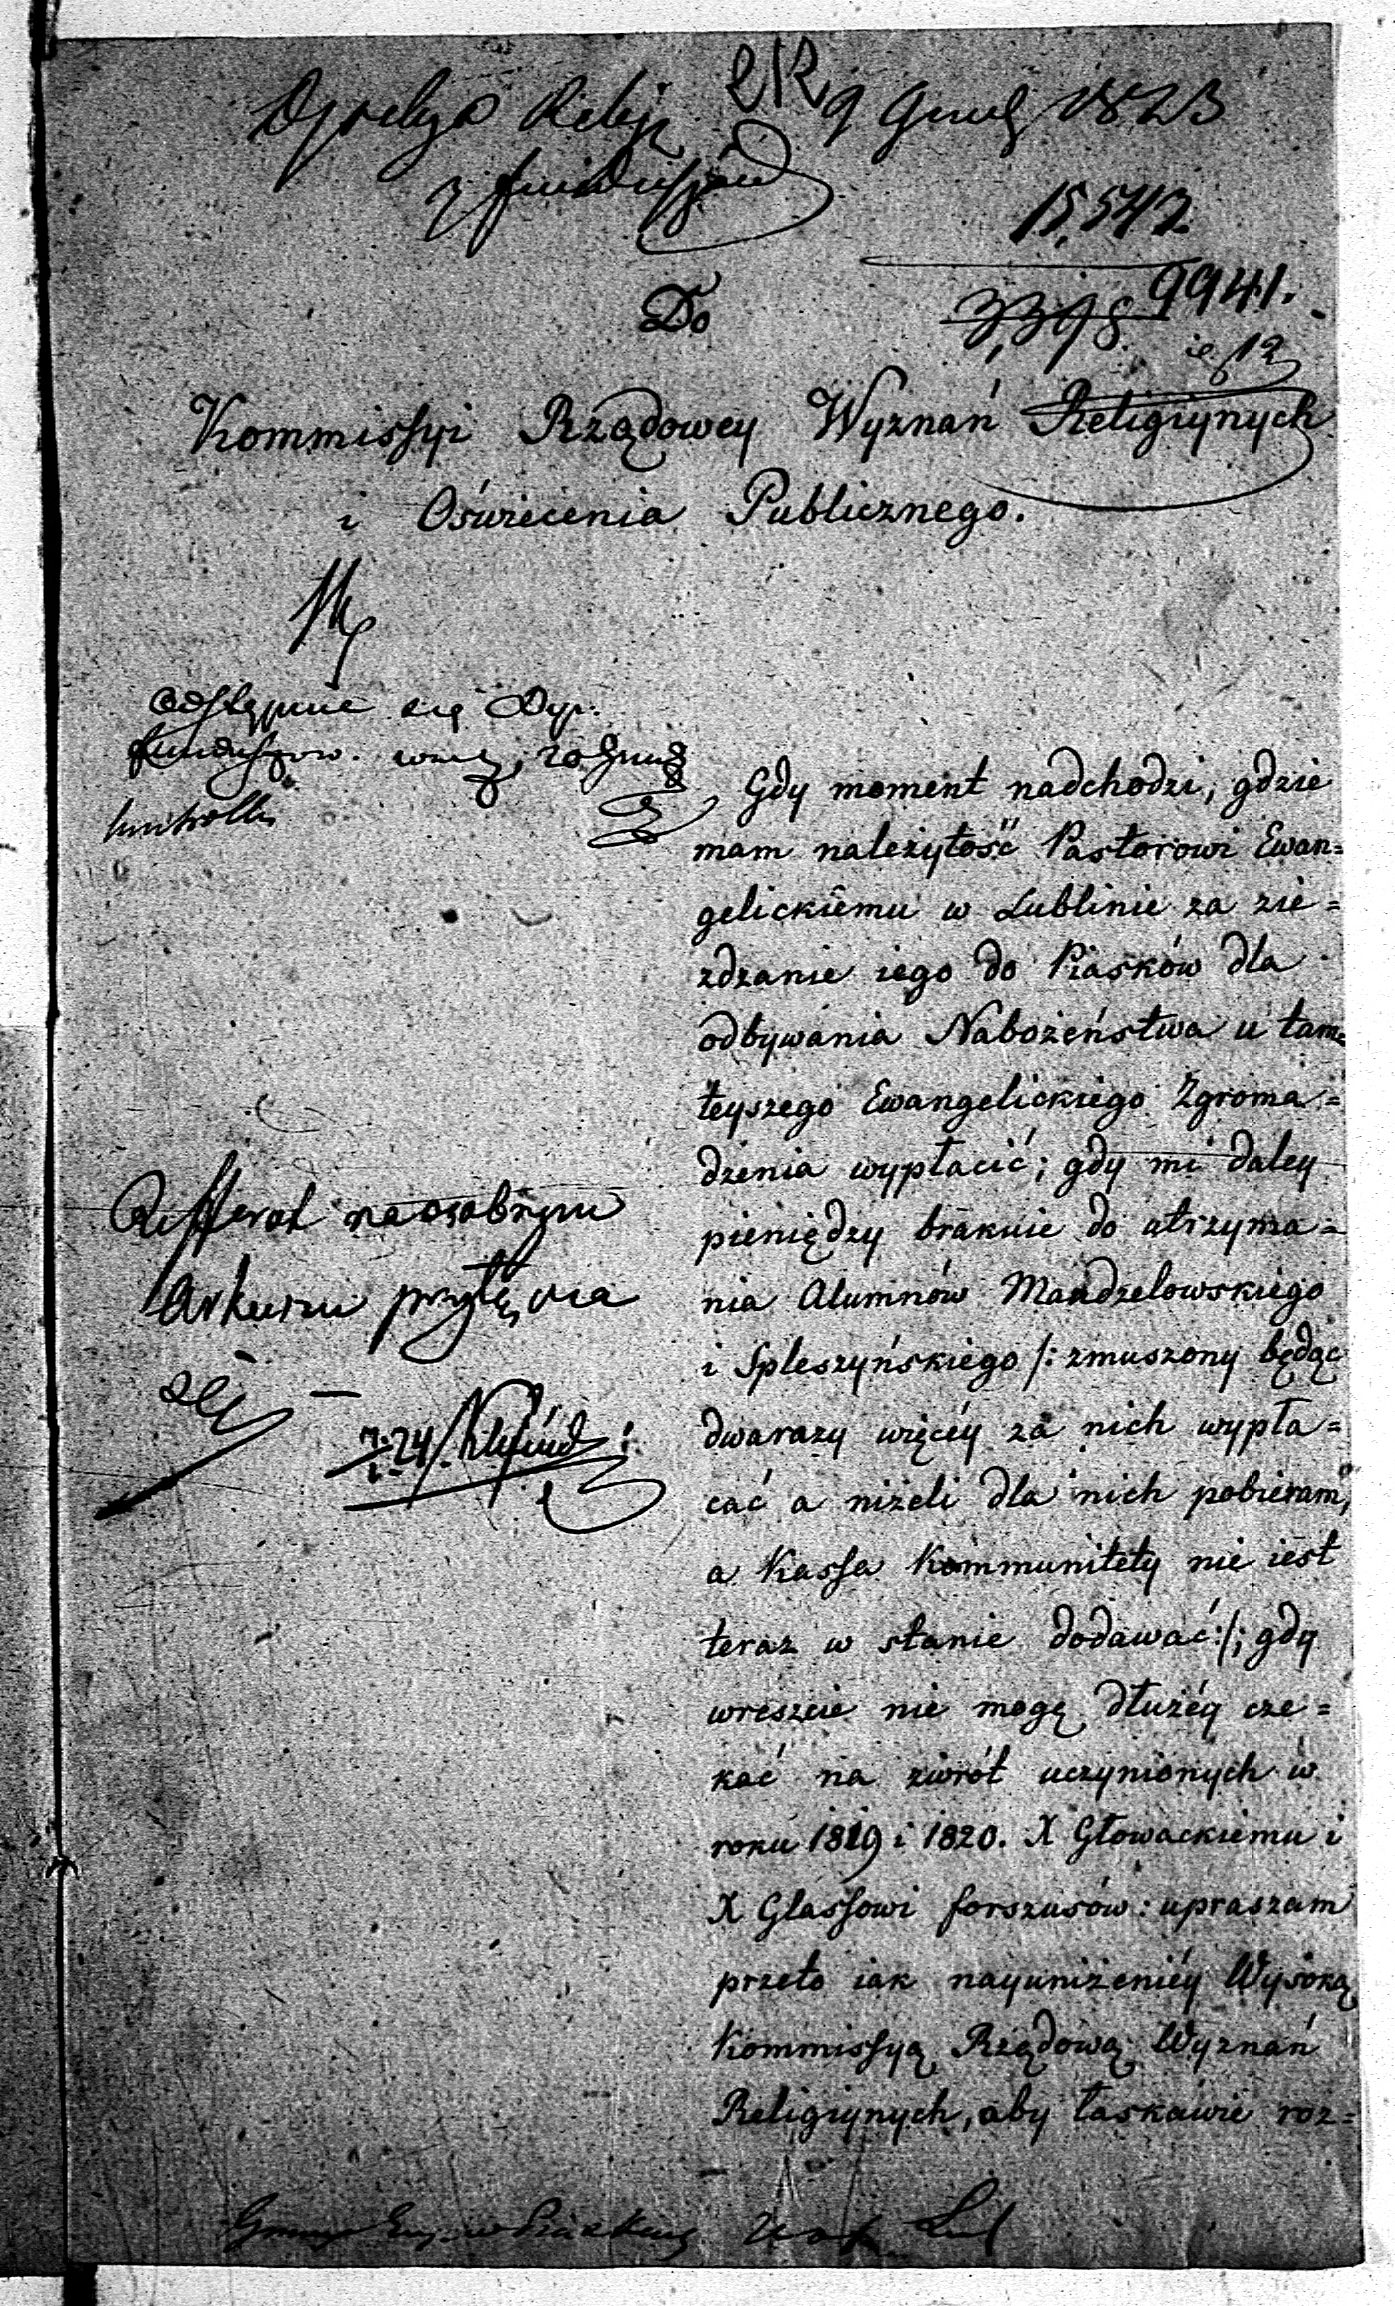 9 1823
15,542
9941.
3,398.
Do
Kommissyi Rządowey Wyznań Religiynych
i Oświecenia Publicznego.
odstępuie się Dyr.
funduszow.
kontrolli
Gdy moment nadchodzi, gdzie
mam należytość Pastorowi Ewan=
gelickiemu w Lublinie za zie=
zdzanie iego do Piasków dla
odbywania Nabożeństwa u tam=
teyszego Ewangelickiego Zgroma=
dzenia wypłacić; gdy mi daley
pieniędzy brakuie do utrzyma=
nia Alumnów Mandzelowskiego
i Spleszyńskiego /: zmuszony będąc
dwarazy więcéy za nich wypła=
cać a niżeli dla nich pobieram,
a Kassa Kommunitety nie iest
teraz w stanie dodawać :/; gdy
wreszcie nie mogę dłużéy cze=
kać na zwrót uczynionych w
roku 1819 i 1820. X Głowackiemu i
X Glassowi forszusów: upraszam
przeto iak nayuniżeniéy Wysoką
Kommissyą Rządową Wyznań
Religiynych, aby łaskawie roz=
Refferat na osobnym
Arkuszu przyłącza